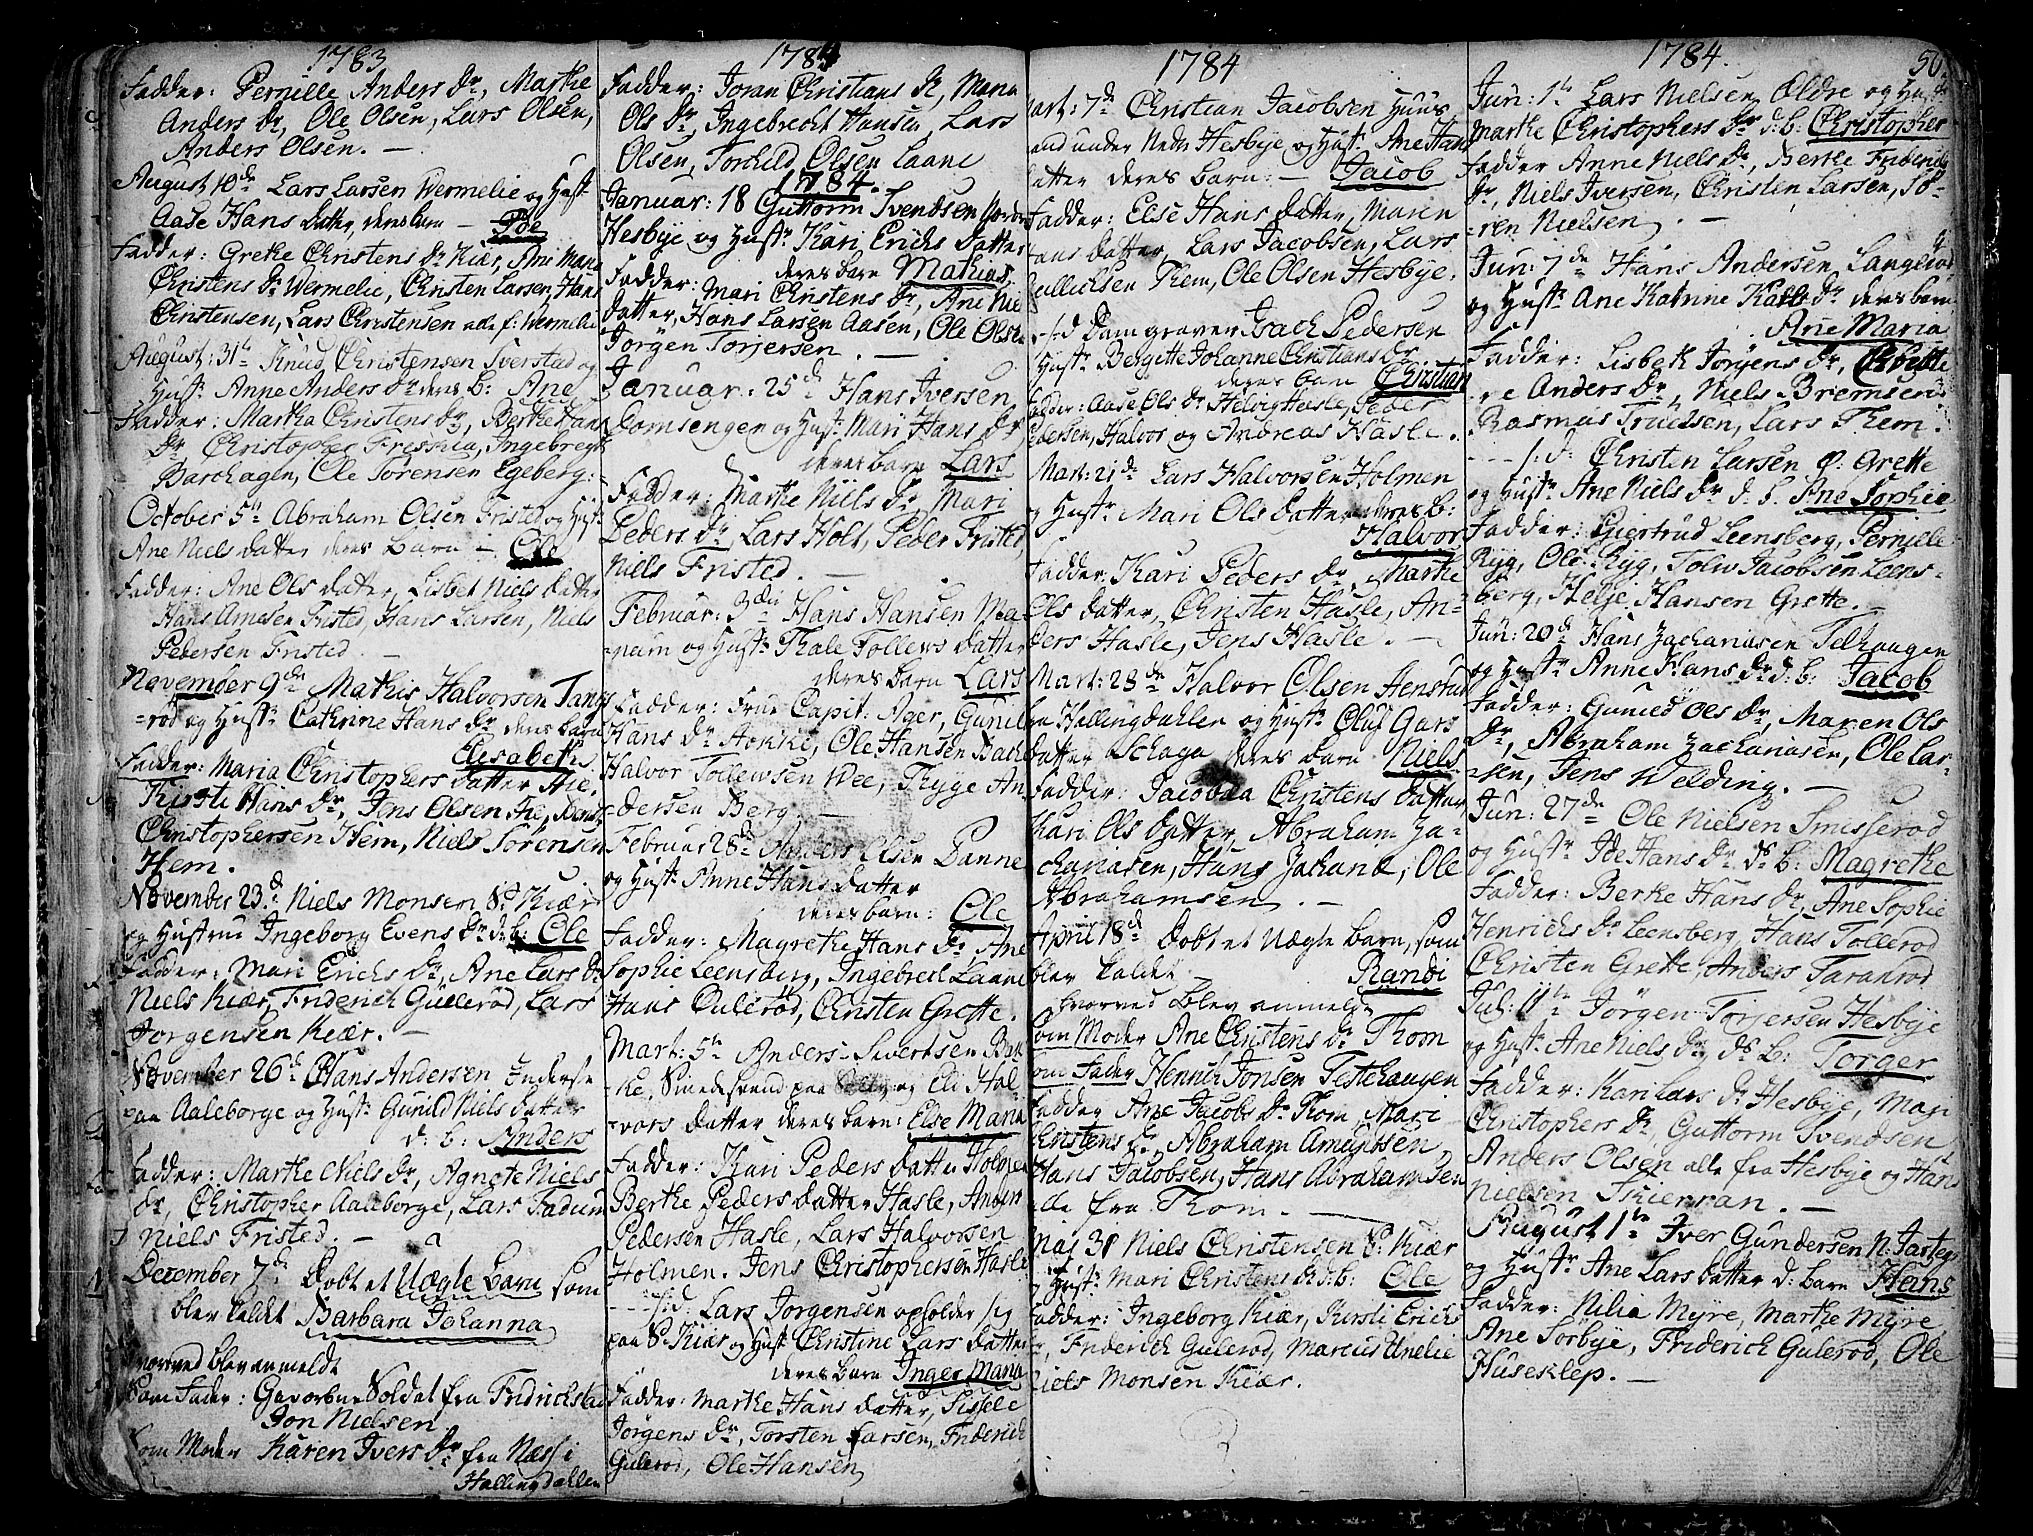 1783
Fadder: Pernille Anders Dr, Marthe
Anders Dr, Ole Olsen, Lars Olsen,
Anders Olsen. —
August 10de Lars Larsen Wermelie og Hust
Aase Hans Datter, deres barn —
Fadder: Grethe Christens Dr Kiær, Ane Maria
Christens Dr Wermelie, Christen Larsen, Hans
Christensen, Lars Christensen alle f: Wermelie
August: 31te Knud Christensen Sverstad og
Hustr Anne Anders Dr deres b: Ane
Fadder: Martha Christens Dr, Berthe Hans
Dr, Christopher Freskia, Ingebregt
Barchagen, Ole Sørensen Egeberg:
October 5te Abraham Olsen Fristed og Hust
Ane Niels datter deres Barn — Ole
Fadder: Ane Ols datter, Lisbet Niels datter
Hans Fristed, Hans Larsen, Niels
Pedersen Fristed. —
November 9de Mathis Halvorsen Tangs
=rød og Hustr Cathrine Hans Dr deres barn
Elisabeth
Fadder: Maria Christophers datter
Kirste Hans Dr, Jens Olsen
Christophersen Hem, Niels Sørensen
Hem.
November 23de Niels Monsen S: Kiær
og Hustrue Ingeborg Evens Dr d: b: Ole
Fadder: Mari Erichs Dr, Ane Lars Dr
Niels Kiær, Friderich Gullerød, Lars
Jorgensen Kiær. —
November 26de Hans Andersen Inderste
paa Aaleborge og Hustr Gunild Niels datter
d: b: Anders
Fadder: Marthe Niels Dr, Agnete Niels
Dr, Christopher Aaleborge, Lars Fadum
Niels Fristed. —
December 7de Døbt et Uægte barn som
blev kaldet Barbara Johanna
hvorved blev anmeldt
Som Fader: Gevorbne Soldat fra Fridrichstad
Jon Nielsen
Som Moder Karen Ivers Dr fra Næss i
Hallingdahlen
1784
Fadder: Joran Christians Dr, Maria
Ols Dr, Ingebrecht Hansen, Lars
Olsen, Torchild Olsen Laane
1784.
Januar: 18 Guttorm Svendsen Nordre
Hesbye og Hustr Kari Erichs Datter
deres barn Mathias
Fadder: Mari Christens Dr, Ane Nie
Datter, Hans Larsen Aasen, Ole Olsen
Jørgen Torjersen. —
Januar: 25de Hans Iversen
Domsengen og Hust: Mari Hans Dr
deres barn Lars
Fadder: Marthe Niels Dr, Mari
Peders Dr, Lars Holt, Peder Fristed
Niels Fristed. —
Februar: Hans Hansen Mea
=num og Hustr Thale Tollews datter
deres barn Lars
Fadder: Frue Capit: Ager, Gunil
Hans Dr Hokke, Ole Hansen
Halvor Tollewsen Wee, Thyge An
=dersen Berg. —
Februar 28de Anders Olsen Danne
og Hust: Anne Hans datter
deres barn: Ole
Fadder: Magrethe Hans Dr, Ane
Sophie Leensberg, Ingebrect Laane
Hans Gulerød, Christen Grette.
Mart: 5te Anders Sivertsen Bak
=ke, og Eli Hal
=vors datter deres barn: Else Maria
Fadder: Kari Peders datter Holmen
Berthe Peders datter Hasle, Anders
Pedersen Hasle, Lars Halvorsen
Holmen. Jens Christophersen Hasle
— s: d: Lars Jorgensen opholder sig
paa S: Kiær og Hust Christine Lars datter
deres barn Inger Maria
Fadder: Marthe Hans datter, Sissele
Jørgens Dr, Torsten Larsen, Friderich
Gulerød, Ole Hansen
1784
Mart: 7de Christian Jacobsen Huus
mand under Nedre Hesbye og Hust: Ane Hans
datter deres barn: — Jacob
Fadder: Else Hans datter, Maren
Hans datter, Lars Jacobsen, Lars
Gullichsen Them, Ole Olsen Hesbye.
— s: d Damgraver Isach Pedersen
Hustr Bergitte Johanne Christians Dr
deres barn Christian
Fadder: Aase Ols Dr Helvig Hasle, Peder
Pedersen, Halvor og Andreas Hasle.
Mart: 21de Lars Halvorsen Holmen
og Hustr Mari Ols datter deres b:
Halvor
Fadder: Kari Peders Dr, Marthe
Ols datter, Christen Hasle, An=
ders Hasle, Jens Hasle. —
Mart: 28de Halvor Olsen
fra Hallingdahlen og Hustr Oluf Gurs
datter deres barn Niels
Fadder: Jacobaa Christens datter,
Kari Ols datter, Abraham Za=
chariasen, Hans Zachariæ, Ole
Abrahamsen. —
April 18de Døbt et Uægte barn, som
blev kaldet Randi
hvorved blev anmeldt
Som Moder Ane Christens Dr Thom
Som Fader Henrich Jonsen Testehaugen
Fadder Ane Jacobs Dr Thom, Mari
Christens Dr, Abraham Amundsen,
Hans Jacobsen, Hans Abrahamsen
alle fra Thom. —
Maj 31 Niels Christensen S: Kiær
og Hustr Mari Christens Dr d: b: Ole
Fadder: Ingeborg Kiær, Kirsti Erichs
Dr, Friderich Gulerød, Marcus Unelie
Niels Monsen Kiær.
1784.
50.
Jun: 1te Lars Nielsen Ældre og Hustr
Marthe Christophers Dr d: b: Christopher
Fadder Anne Niels Dr, Berthe Friderichs
Dr, Niels Iversen, Christen Larsen, Sø=
=ren Nielsen. —
Jun: 7de Hans Andersen Langerød
og Hustr Ane Katrine Karls Dr deres barn
Ane Maria
Fadder: Lisbeth Jorgens Dr,
Anders Dr, Niels Bremsen
Rasmus Truelsen, Lars Them.
— s: d: Christen Larsen Ø: Grette
og Hustr Ane Niels Dr d: b: Ane Sophie
Fadder: Giertrud Leensberg, Pernille
Ryg, Ole Ryg, Toliv Jacobsen Leens=
berg, Helje Hansen Grette. —
Jun: 20de Hans Zachariasen Telhaugen
og Hustr Anne Hans Dr d: b: Jacob
Fadder: Gunild Ols Dr, Maren Ols
Dr, Abraham Zachariasen, Ole Lar=
=sen, Jens Welding. —
Jun: 27de Ole Nielsen Smisserød
og Hustr Ide Hans Dr Ds B: Magrethe
Fadder: Berthe Hans Dr, Ane Sophie
Henrichs Dr Leensberg, Hans Tollerød
Christen Grette, Anders Taranrød
Jul: 11te Jörgen Torjersen Hesbye
og Hustr Ane Niels Dr, Ds B: Torger
Fadder: Kari Lars Dr Hesbye, Mari
Christophers Dr, Guttorm Svendsen
Anders Olsen alle fra Hesbye og Hans
Nielsen Skierran. —
August 1te Iver Gundersen N: Jarteg
og Hustr Ane Lars datter d: barn Hans
Fadder: Nilia Myre, Marthe Myre,
Ane Sørbye, Friderich Gulerød, Ole
Huseklep. —